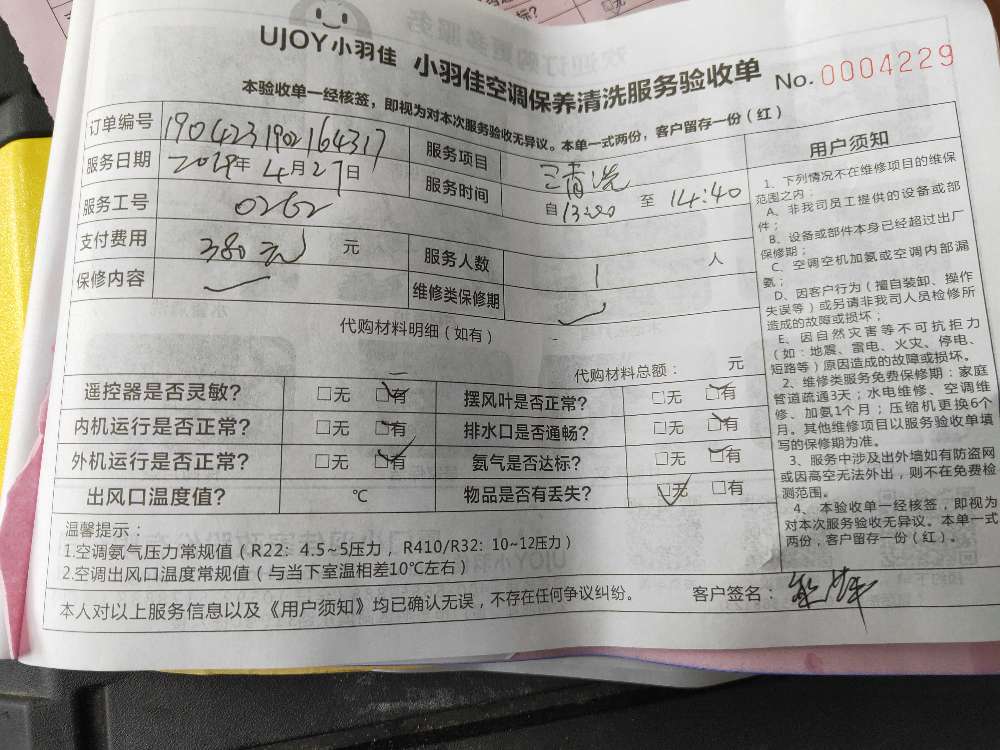 UJOY小羽佳 小羽佳空调保养清洗服务验收单 No.0004229
本验收单一经核签，即视为对本次服务验收无异议。本单一式两份，客户留存一份（红）
订单编号 1904231902164317 服务项目
服务日期 2019年4月27日 服务时间 自13:20 至 14:40
服务工号 0262
支付费用 380元 元 服务人数 1 人
保修内容 维修类保修期
代购材料明细（如有）
代购材料总额： 元
遥控器是否灵敏? □无 □有 摆风叶是否正常? □无 □有
内机运行是否正常? □无 □有 排水口是否通畅? □无 □有
外机运行是否正常? □无 □有 氨气是否达标? □无 □有
出风口温度值? ℃ 物品是否有丢失? □无 □有
温馨提示：
1.空调氨气压力常规值（R22: 4.5~5压力，R410/R32: 10~12压力）
2.空调出风口温度常规值（与当下室温相差10℃左右）
本人对以上服务信息以及《用户须知》均已确认无误，不存在任何争议纠纷。 客户签名：
用户须知
1、下列情况不在维修项目的维保
范围之内：
A、非我司员工提供的设备或部
件；
B、设备或部件本身已经超过出厂
保修期；
C、空调空机加氨或空调内部漏
氨；
D、因客户行为（擅自装卸、操作
失误等）或另请非我司人员检修所
造成的故障或损坏；
E、因自然灾害等不可抗拒力
（如：地震、雷电、火灾、停电、
短路等）原因造成的故障或损坏。
2、维修类服务免费保修期：家庭
管道疏通3天；水电维修、空调维
修、加氨1个月；压缩机更换6个
月。其他维修项目以服务验收单填
写的保修期为准。
3、服务中涉及出外墙如有防盗网
或因高空无法外出，则不在免费检
测范围。
4、本验收单一经核签，即视为
对本次服务验收无异议。本单一式
两份，客户留存一份（红）。